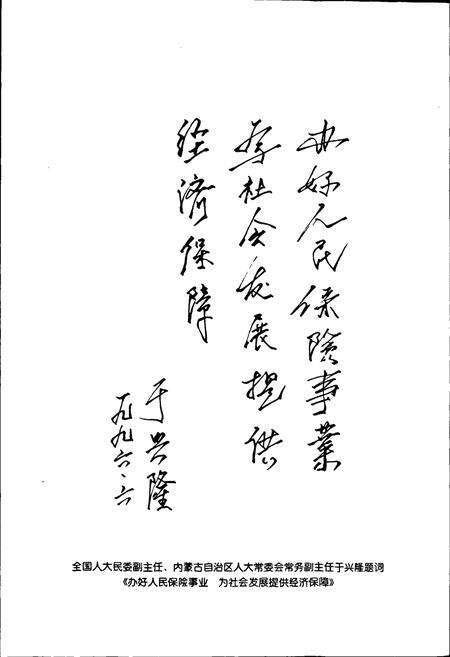 办好人民保險事業
为社会发展提供
经济保障
于兴隆
一九九六·六
全国人大民委副主任、内蒙古自治区人大常委会常务副主任于兴隆题词
《办好人民保险事业　为社会发展提供经济保障》